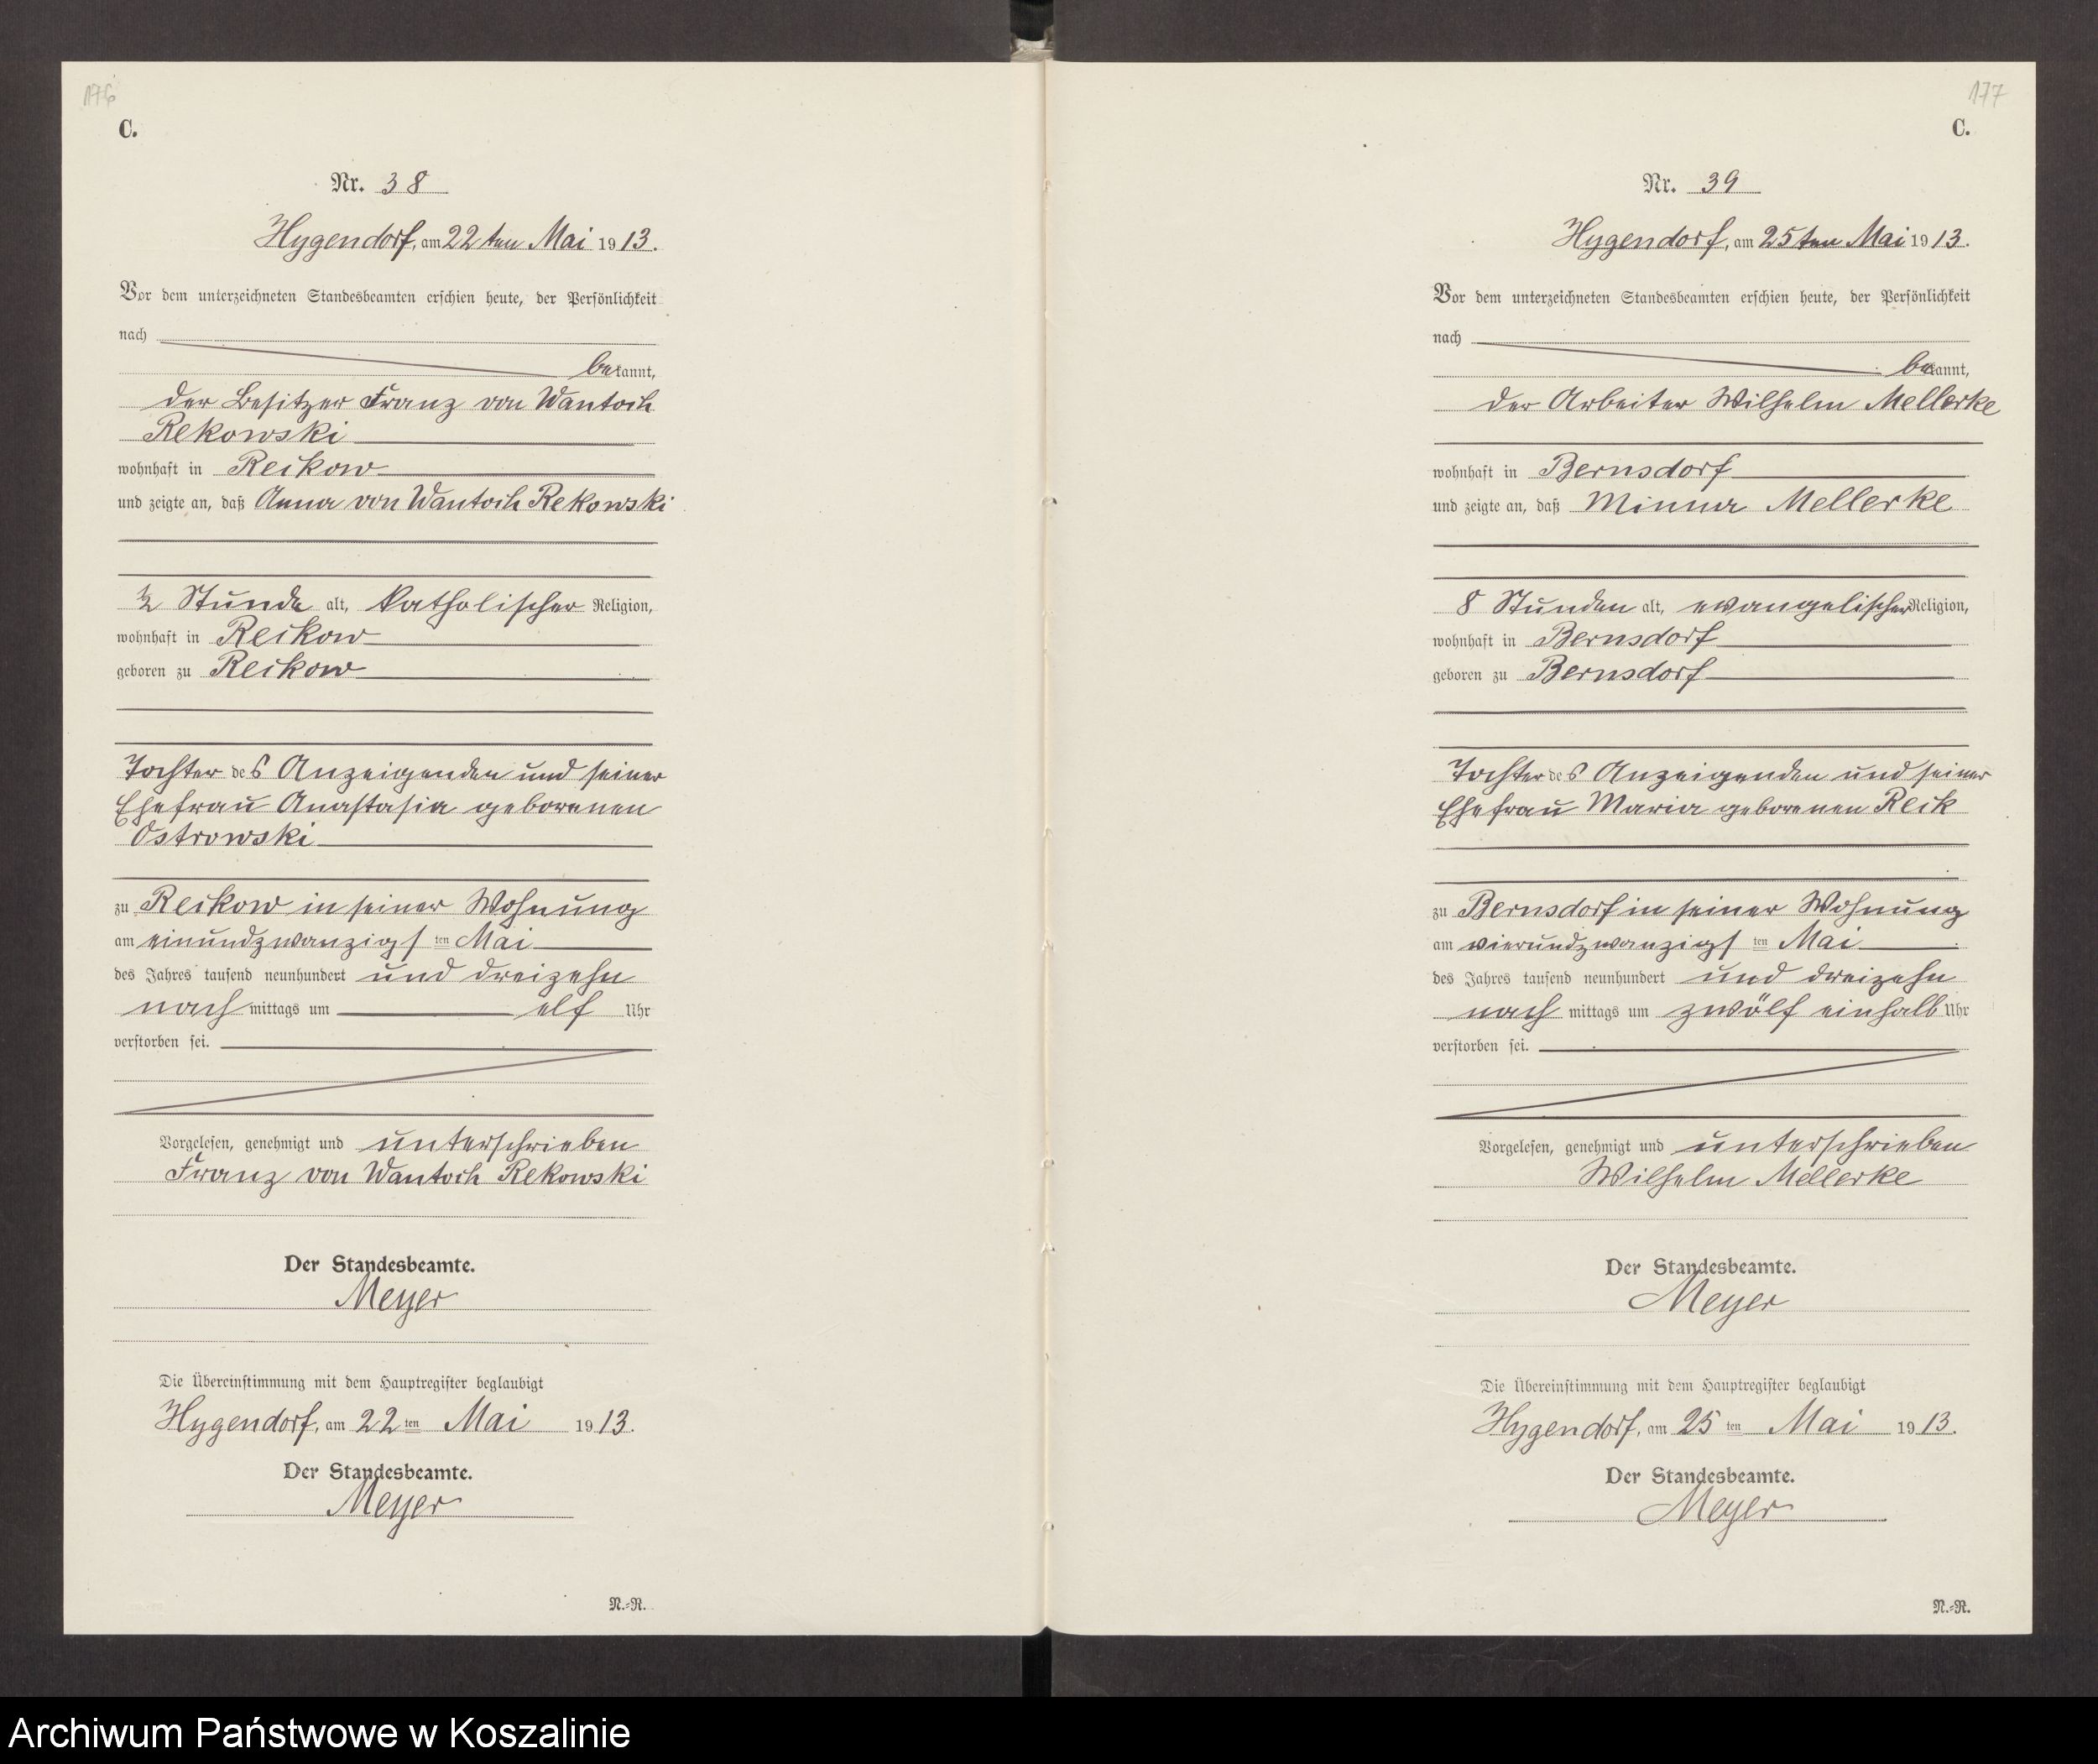 176
C.
Nr. 38
Hygendorf, am 22ten Mai 1913.
Vor dem unterzeichneten Standesbeamten erschien heute, der Persönlichkeit
nach
bekannt,
der Besitzer Franz von Wantoch
Rekowski
wohnhaft in Reikow
und zeigte an, daß Anna von Wantoch Rekowski
½ Stunde alt, katholischer Religion,
wohnhaft in Reikow
geboren zu Reikow
Tochter des Anzeigenden und seiner
Ehefrau Anastasia geborenen
Ostrowski
zu Reikow in seiner Wohnung
am einundzwanzigsten Mai
des Jahres tausend neunhundert und dreizehn
nachmittags um elf Uhr
verstorben sei.
Vorgelesen, genehmigt und unterschrieben
Franz von Wantoch Rekowski
Der Standesbeamte.
Meyer
Die Übereinstimmung mit dem Hauptregister beglaubigt
Hygendorf, am 22ten Mai 1913.
Der Standesbeamte.
Meyer
N.-R.
177
C.
Nr. 39
Hygendorf, am 25ten Mai 1913.
Vor dem unterzeichneten Standesbeamten erschien heute, der Persönlichkeit
nach
bekannt,
der Arbeiter Wilhelm Mellerke
wohnhaft in Bernsdorf
und zeigte an, daß Minna Mellerke
8 Stunden alt, evangelischer Religion,
wohnhaft in Bernsdorf
geboren zu Bernsdorf
Tochter des Anzeigenden und seiner
Ehefrau Maria geborenen Reik
zu Bernsdorf in seiner Wohnung
am vierundzwanzigsten Mai
des Jahres tausend neunhundert und dreizehn
nachmittags um zwölf einhalb Uhr
verstorben sei.
Vorgelesen, genehmigt und unterschrieben
Wilhelm Mellerke
Der Standesbeamte.
Meyer
Die Übereinstimmung mit dem Hauptregister beglaubigt
Hygendorf, am 25ten Mai 1913.
Der Standesbeamte.
Meyer
N.-R.
Archiwum Państwowe w Koszalinie